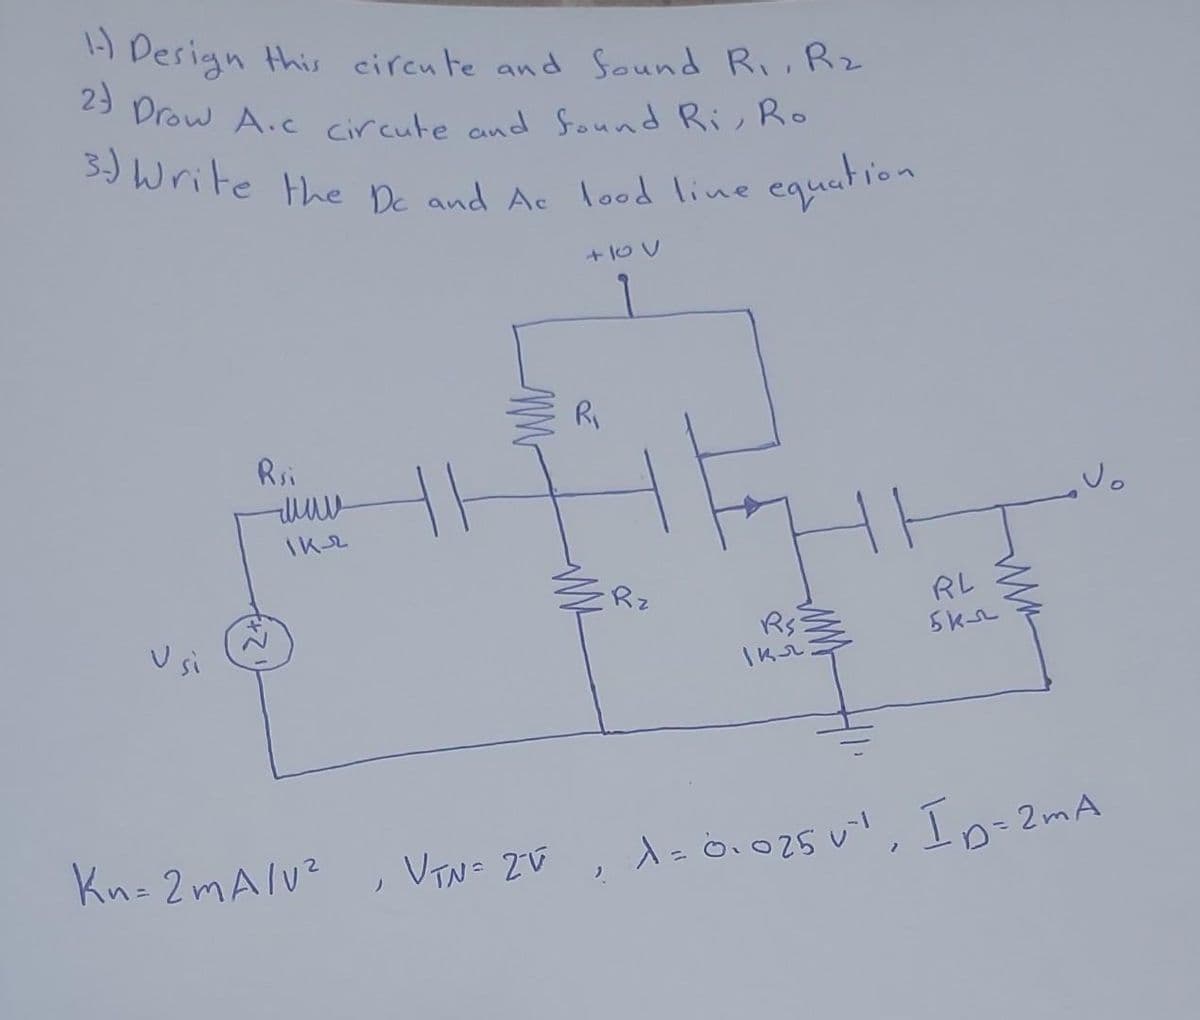 1-) Design this circute and found R1, R2
2-) Drow A.c circute and found Ri, Ro
3-) Write the Dc and Ac lood line equation
+10 V
R1
Rsi
1KΩ
Vo
R2
RL
5KΩ
Rs
1KΩ
+
~
-
Vsi
Kn=2mA/V², VTN=2V, λ=0.025 V⁻¹, ID=2mA